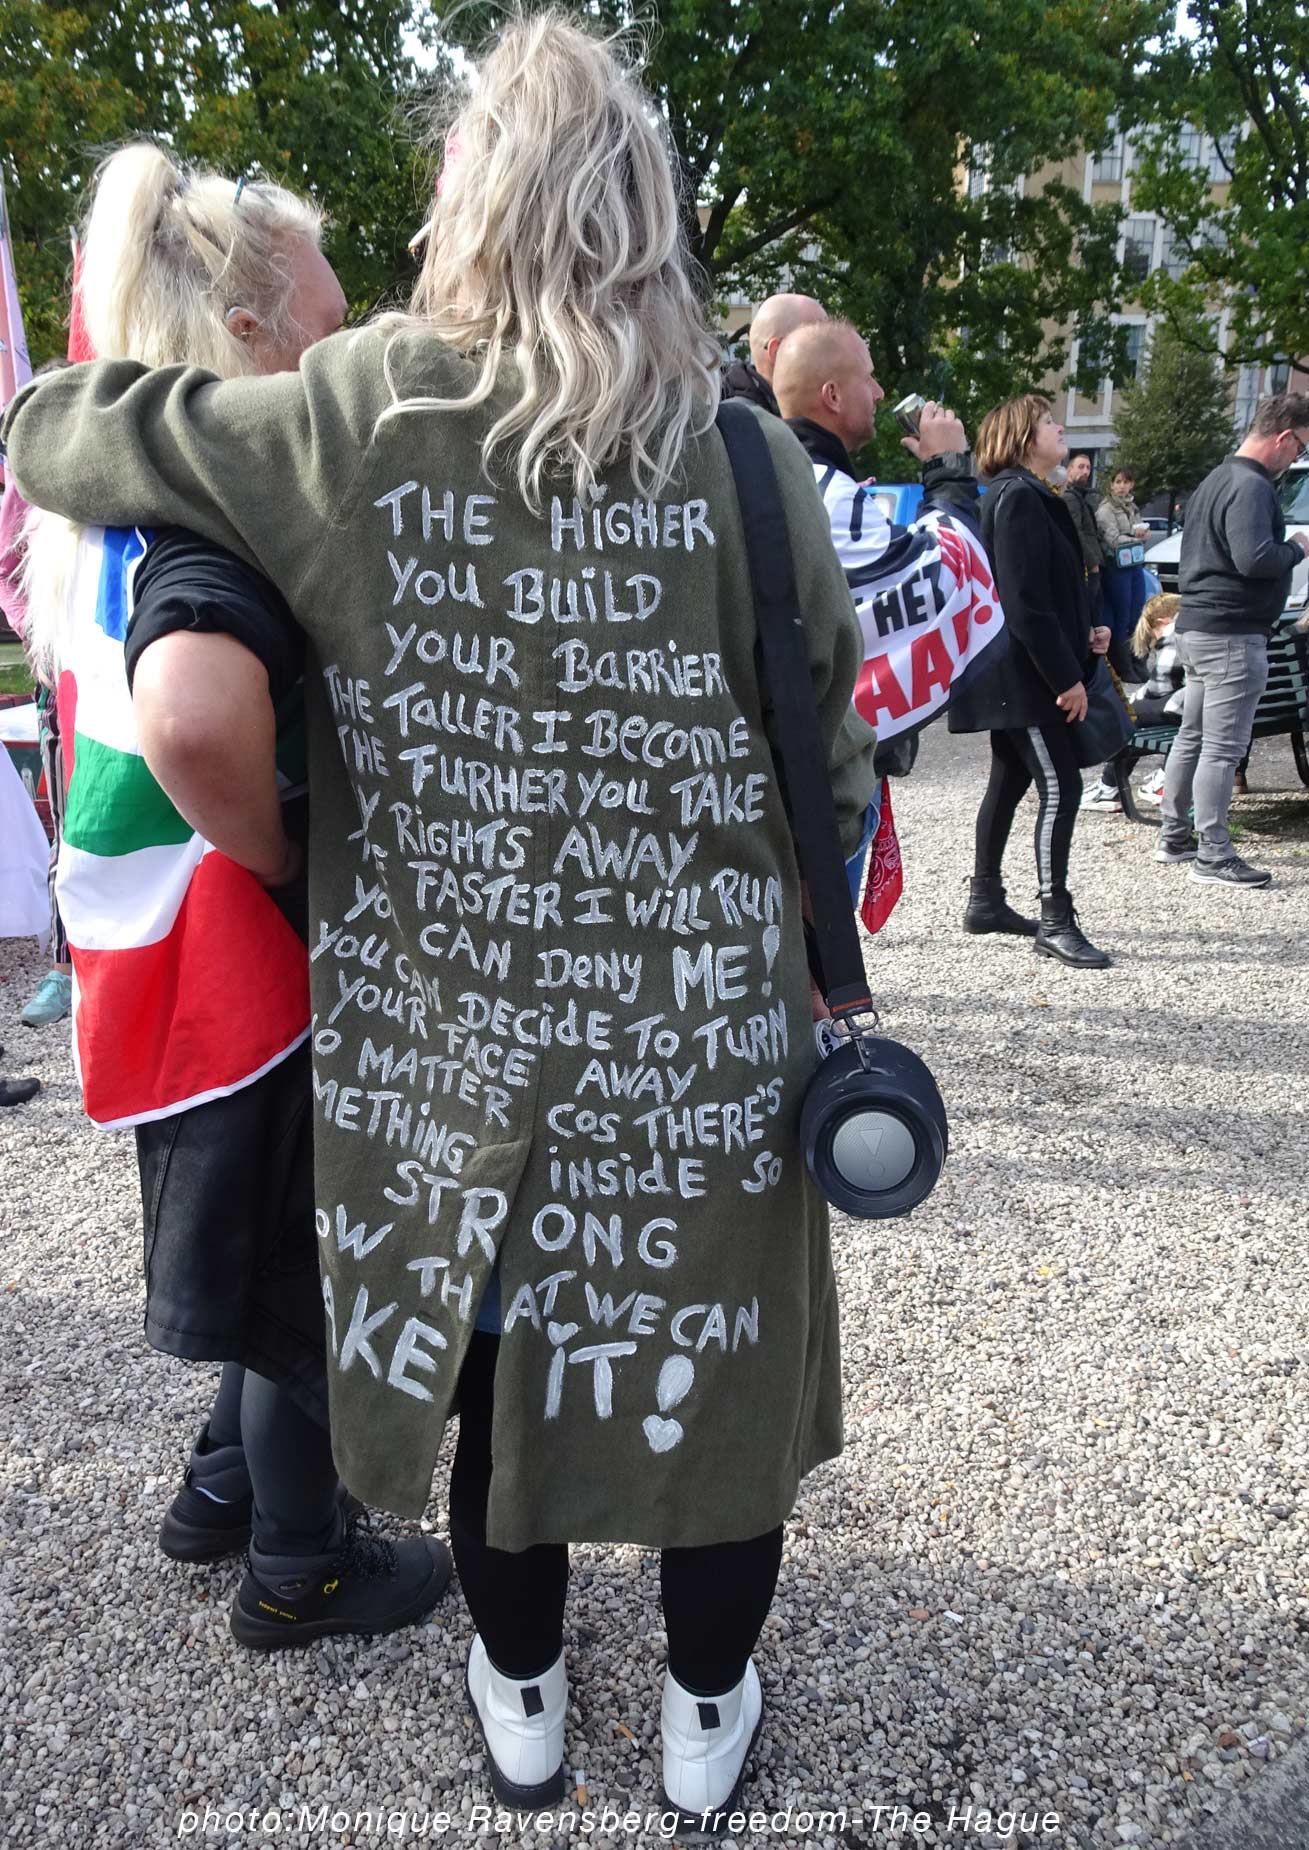 THE HiGHER
YOU BUiLD
YOUR BARRiER
THE TALLER I BECOME
THE FURHER YOU TAKE
Y RIGHTS AWAY
FASTER I WiLL RUN
YOU CAN DENY ME!
YOU CAN DECiDE TO TURN
YOUR FACE AWAY
O MATTER COS THERE'S
METHiNG iNSidE SO
STRONG
OW THAT WE CAN
AKE iT!
HET
AA
photo:Monique Ravensberg-freedom-The Hague